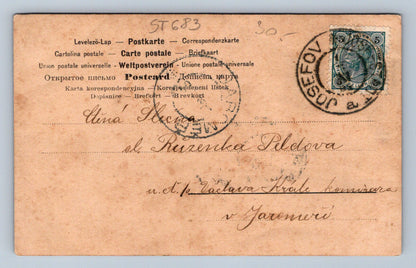 ST 683
30,-
Levelező-Lap — Postkarte — Correspondenzkarte
Cartolina postale — Carte postale — Briefkaart
Union postale universelle — Weltpostverein — Unione postale universale
Открытое письмо Postcard Дописна карта
Karta korespondencyjna — Korespondenční lístek
Dopisnice — Brefkort — Brevkort
JOSEFOV
JAROMĚŘ
Ctěná Slečna
sl. Ruzenka Peldova
u. d. p. Václava Krále
v Jaroměři